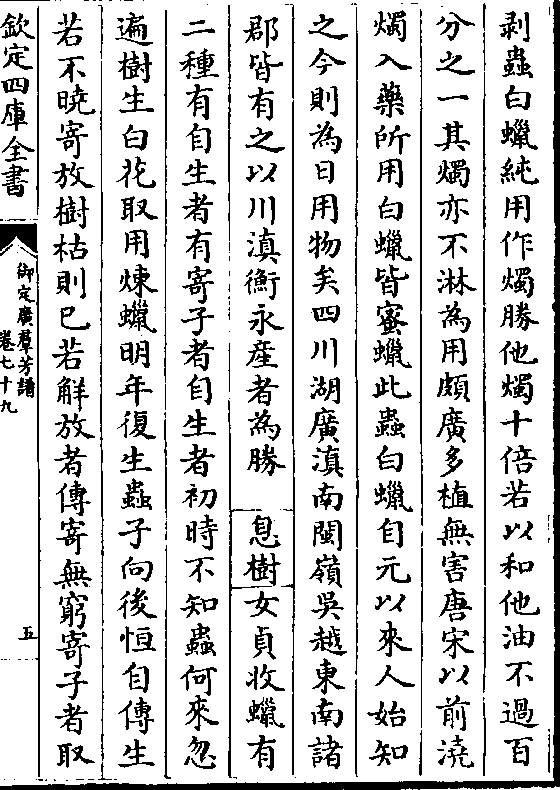 剥蟲白蠟純用作燭勝他燭十倍若以和他油不過百
分之一其燭亦不淋為用頗廣多植無害唐宋以前澆
燭入藥所用白蠟皆蜜蠟此蟲白蠟自元以來人始知
之今則為日用物矣四川湖廣滇南閩嶺吳越東南諸
郡皆有之以川滇衡永産者為勝 息樹女貞收蠟有
二種有自生者有寄子者自生者初時不知蟲何來忽
遍樹生白花取用煉蠟明年復生蟲子向後恒自傳生
若不曉寄放樹枯則已若解放者傳寄無窮寄子者取
欽定四庫全書
御定廣羣芳譜
卷七十九
五